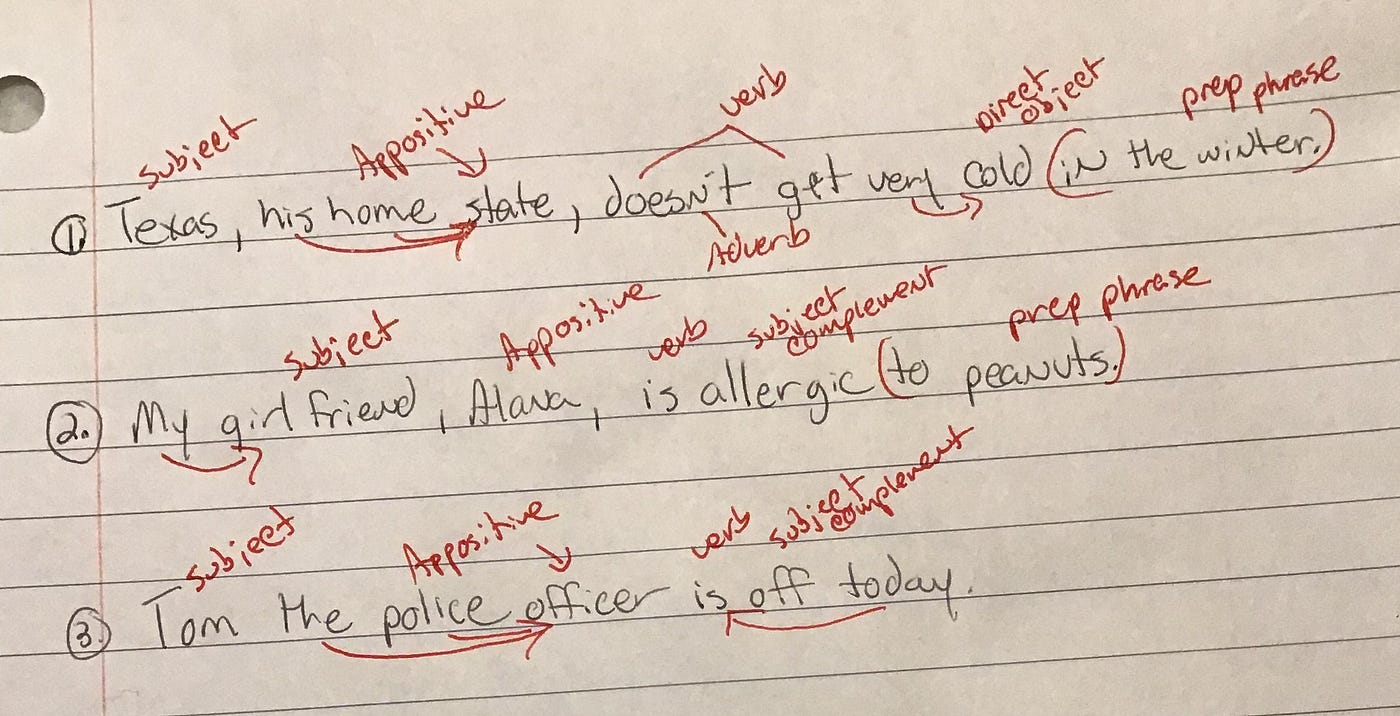 subject Appositive verb Direct object prep phrase
① Texas, his home state, doesn't get very cold (in the winter.)
Adverb
subject Appositive verb subject complement prep phrase
②. My girlfriend, Alana, is allergic (to peanuts.)
subject Appositive verb subject complement
③. Tom the police officer is off today.